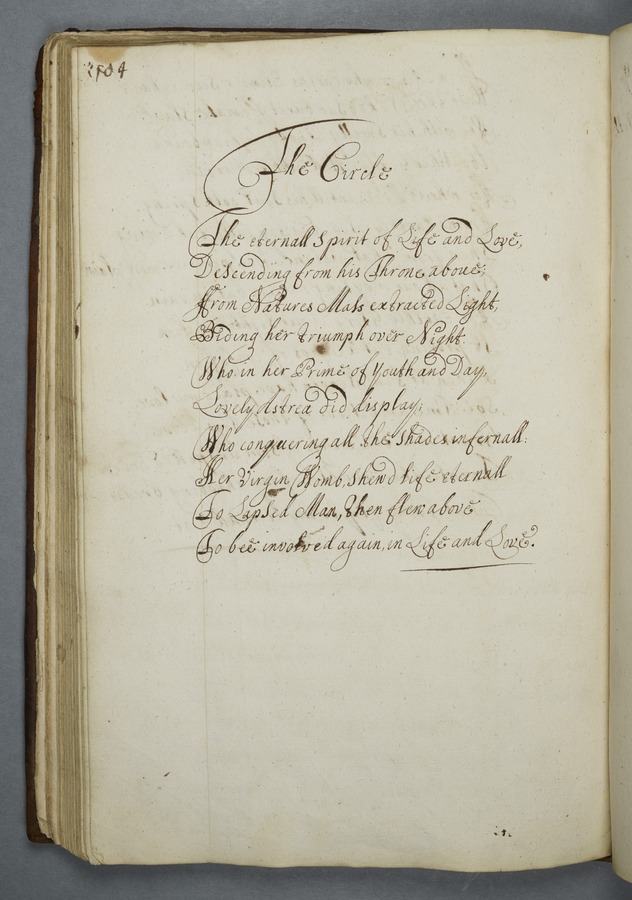 The Circle
The eternall Spirit of Life and Love,
Descending from his Throne above;
From Natures Mass extracted Light,
Biding her triumph over Night.
Who in her Prime of Youth and Day,
Lovely Astrea did display;
Who conquering all the shades infernall:
Her Virgin Womb, shew'd life eternall
To Lapsed Man, then flew above
To bee involved again, in Life and Love.